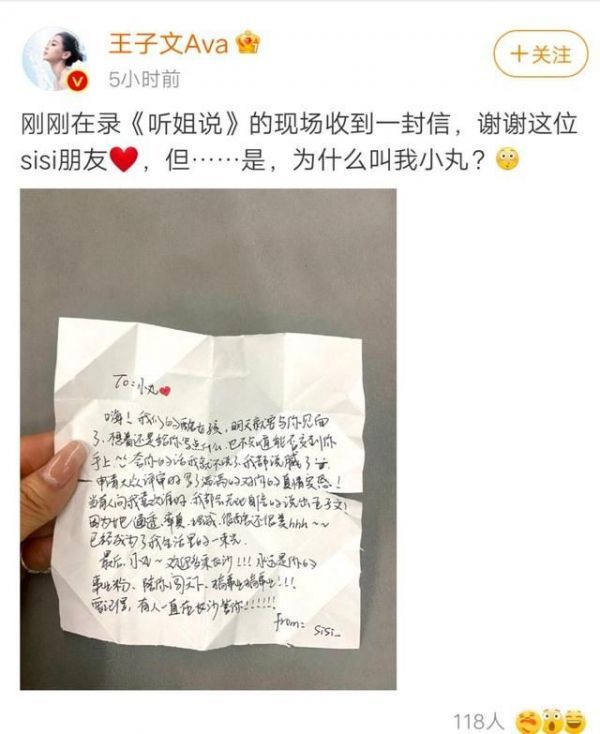 王子文Ava
5小时前
+关注
刚刚在录《听姐说》的现场收到一封信，谢谢这位
sisi朋友，但……是，为什么叫我小丸？
To:小丸
嗨！我们的酷女孩，明天就要与你见面
了，想着还是给你写点什么，也不知道能否交到你
手上，夸你的话我就不说了，我都说腻了
申请大众评审时写了满满的对你的真情实感！
当有人问我喜欢谁时，我都会无比自信的说出王子文！
因为她通透、率真、坦诚，很酷还很美hhh~~
已经成为了我生活里的一束光
最后，小丸~欢迎你来长沙!!!永远是你的
事业粉、陪你闯天下、搞事业搞事业!!!
要记得，有人一直在长沙等你!!!!!!
from: sisi
118人